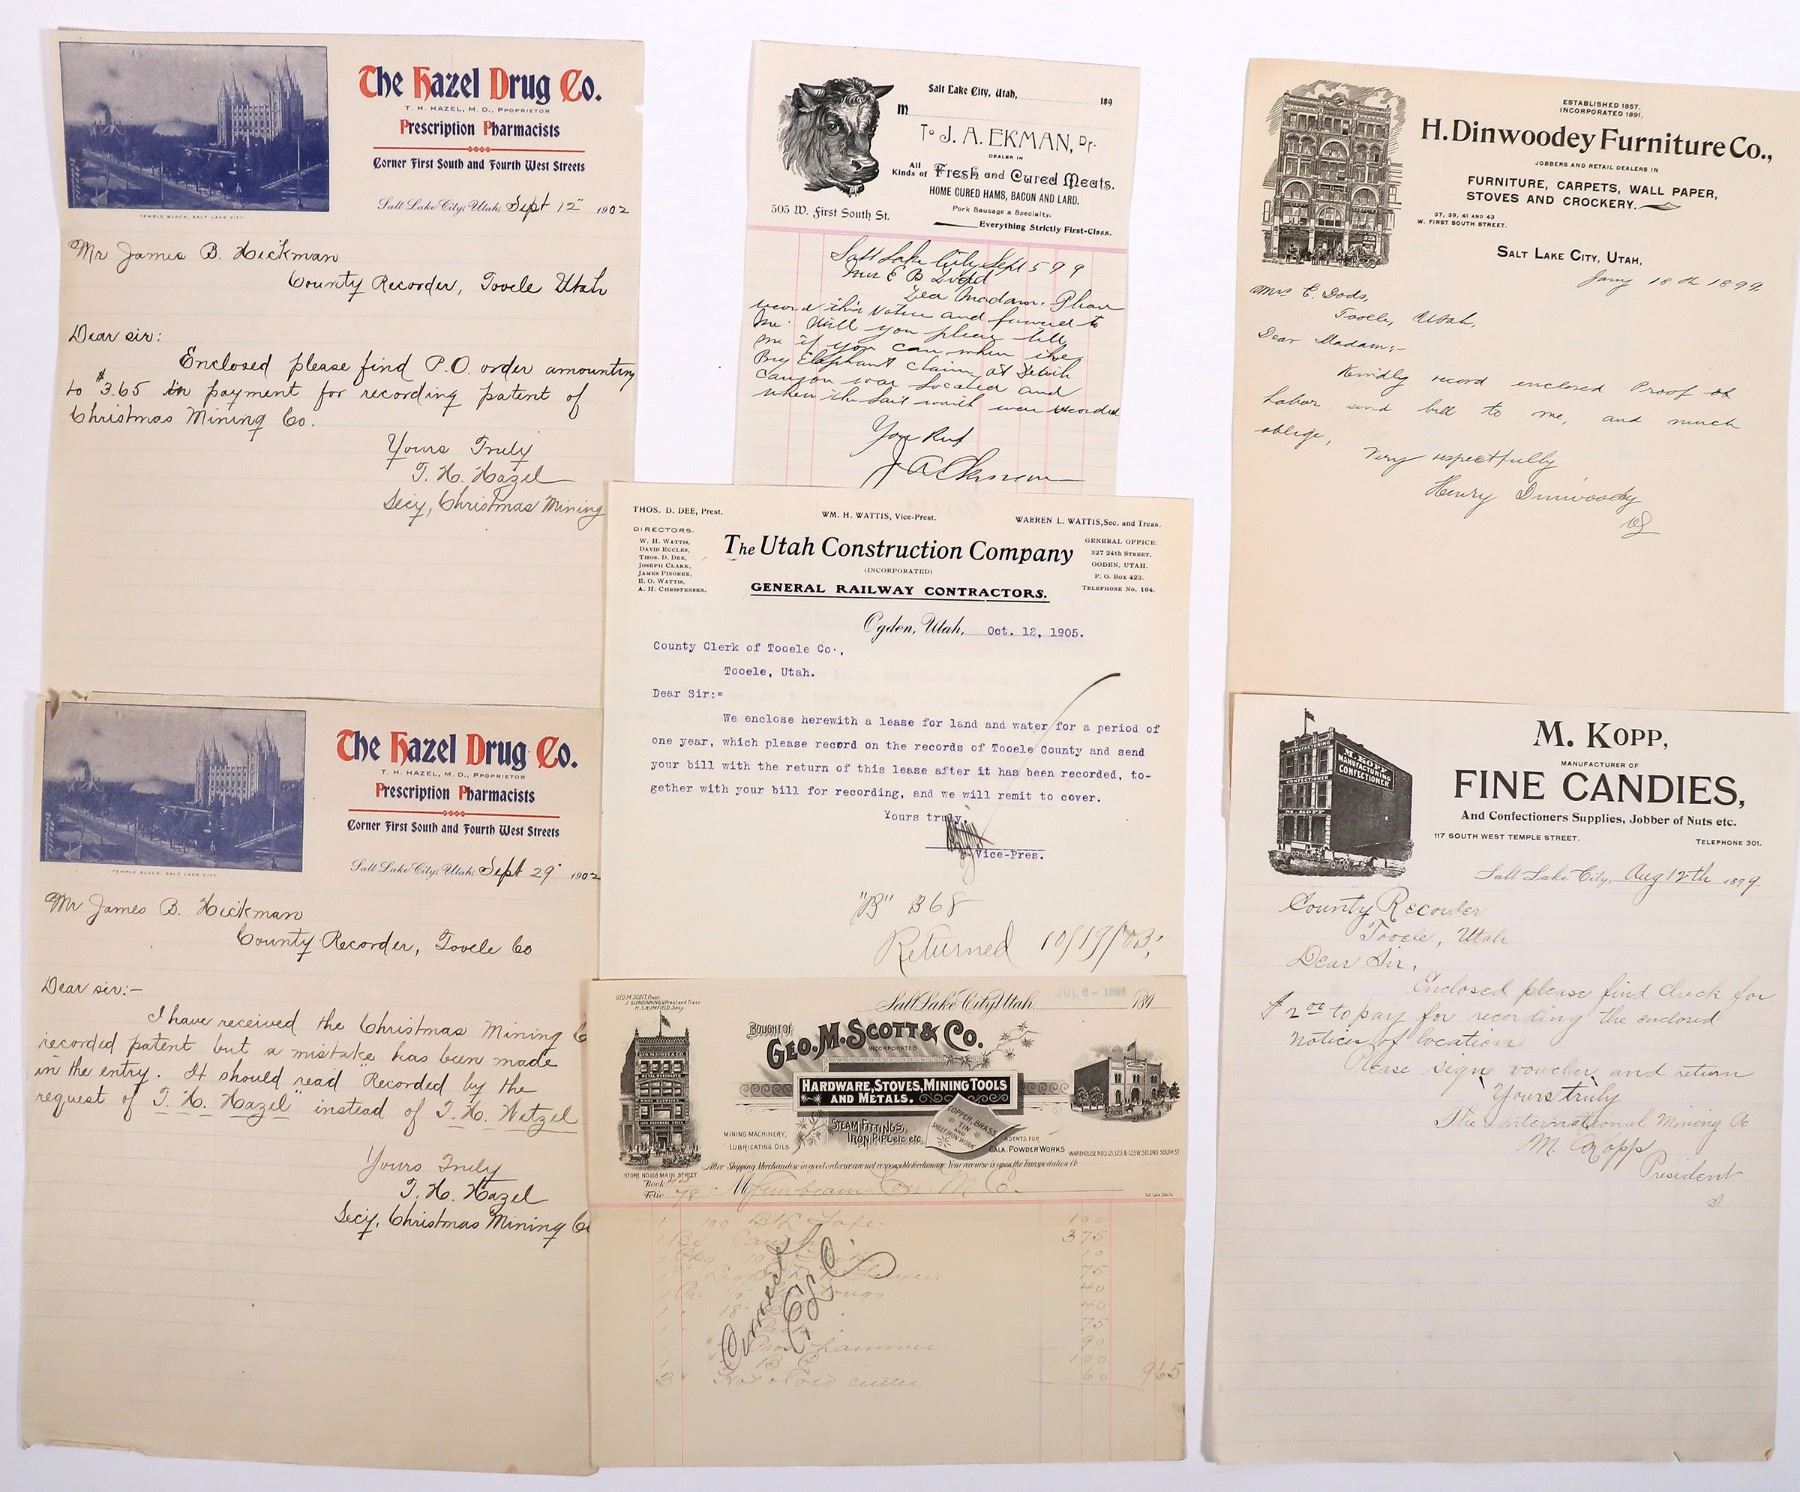 The Hazel Drug Co.
T. H. HAZEL, M. D., PROPRIETOR
Prescription Pharmacists
Corner First South and Fourth West Streets
TEMPLE BLOCK, SALT LAKE CITY
Salt Lake City, Utah, Sept 12" 1902
Mr James B. Hickman
County Recorder, Tooele Utah
Dear sir:
Enclosed please find P.O. order amounting
to $3.65 in payment for recording patent of
Christmas Mining Co.
Yours Truly
T. H. Hazel
Secy, Christmas Mining
Salt Lake City, Utah, 189
M
To J. A. EKMAN, Dr.
DEALER IN
All Kinds of Fresh and Cured Meats.
HOME CURED HAMS, BACON AND LARD.
Pork Sausage a Specialty.
505 W. First South St.
Everything Strictly First-Class.
Salt Lake City Sept 5 99
Mrs E B
Dear Madam. Please
record this Notice and forward to
me. Will you please tell
me if you can when the
Big Elephant claim at
Canyon was located and
when the last was recorded
J A Ekman
ESTABLISHED 1857.
INCORPORATED 1891.
H. Dinwoodey Furniture Co.,
JOBBERS AND RETAIL DEALERS IN
FURNITURE, CARPETS, WALL PAPER,
STOVES AND CROCKERY.
37, 39, 41 AND 43
W. FIRST SOUTH STREET.
SALT LAKE CITY, UTAH,
Jany 18th 1899
Mrs. E. Dods,
Tooele, Utah,
Dear Madam:-
Kindly record enclosed Proof of
Labor send bill to me, and much
oblige,
Very respectfully
Henry Dinwoodey
THOS. D. DEE, Prest.
WM. H. WATTIS, Vice-Prest.
WARREN L. WATTIS, Sec. and Treas.
DIRECTORS.
W. H. WATTIS,
DAVID ECCLES,
THOS. D. DEE,
JOSEPH CLARK,
JAMES PINGREE,
E. O. WATTIS,
A. H. CHRISTENSEN.
The Utah Construction Company
(INCORPORATED)
GENERAL RAILWAY CONTRACTORS.
GENERAL OFFICE:
327 24th STREET,
OGDEN, UTAH.
P. O. BOX 423.
TELEPHONE No. 164.
Ogden, Utah, Oct. 12, 1905.
County Clerk of Tooele Co.,
Tooele, Utah.
Dear Sir:=
We enclose herewith a lease for land and water for a period of
one year, which please record on the records of Tooele County and send
your bill with the return of this lease after it has been recorded, to-
gether with your bill for recording, and we will remit to cover.
Yours truly,
Vice-Pres.
"B" 368
Returned 10/19/03;
The Hazel Drug Co.
T. H. HAZEL, M. D., PROPRIETOR
Prescription Pharmacists
Corner First South and Fourth West Streets
TEMPLE BLOCK, SALT LAKE CITY
Salt Lake City, Utah, Sept 29" 1902
Mr James B. Hickman
County Recorder, Tooele Co
Dear sir:-
I have received the Christmas Mining C
recorded patent but a mistake has been made
in the entry. It should read "Recorded by the
request of T. H. Hazel" instead of T. H. Wetzel
Yours Truly
T. H. Hazel
Secy, Christmas Mining Co
M. KOPP
MANUFACTURING
CONFECTIONER
M. KOPP,
MANUFACTURER OF
FINE CANDIES,
And Confectioners Supplies, Jobber of Nuts etc.
117 SOUTH WEST TEMPLE STREET. TELEPHONE 301.
Salt Lake City, Aug 12th 1899.
County Recorder
Tooele, Utah
Dear Sir,
Enclosed please find check for
$2.00 to pay for recording the enclosed
notices of location
Please sign voucher and return
Yours truly
The International Mining Co
M. Kopp
President
GEO. M. SCOTT, Prest.
Salt Lake City, Utah. JUL 6 - 1893 189
BOUGHT OF
GEO. M. SCOTT & CO.
INCORPORATED
HARDWARE, STOVES, MINING TOOLS
AND METALS.
STEAM FITTINGS,
IRON PIPE, etc. etc.
COPPER, BRASS
TIN
AND
SHEET IRON WORK
MINING MACHINERY,
LUBRICATING OILS
AGENTS FOR
CALA. POWDER WORKS
STORE NO. 168 MAIN STREET.
WAREHOUSE NOS 121, 123 & 125 W. SECOND SOUTH ST.
After Shipping Merchandise in good order we are not responsible for damage. Your recourse is upon the Transportation Co.
Book
Folio 78
M Sunbeam Con. M. Co.
1 100 100
375
10
75
40
1 18 40
75
hammer 90
1 100
3 60 965
Correct